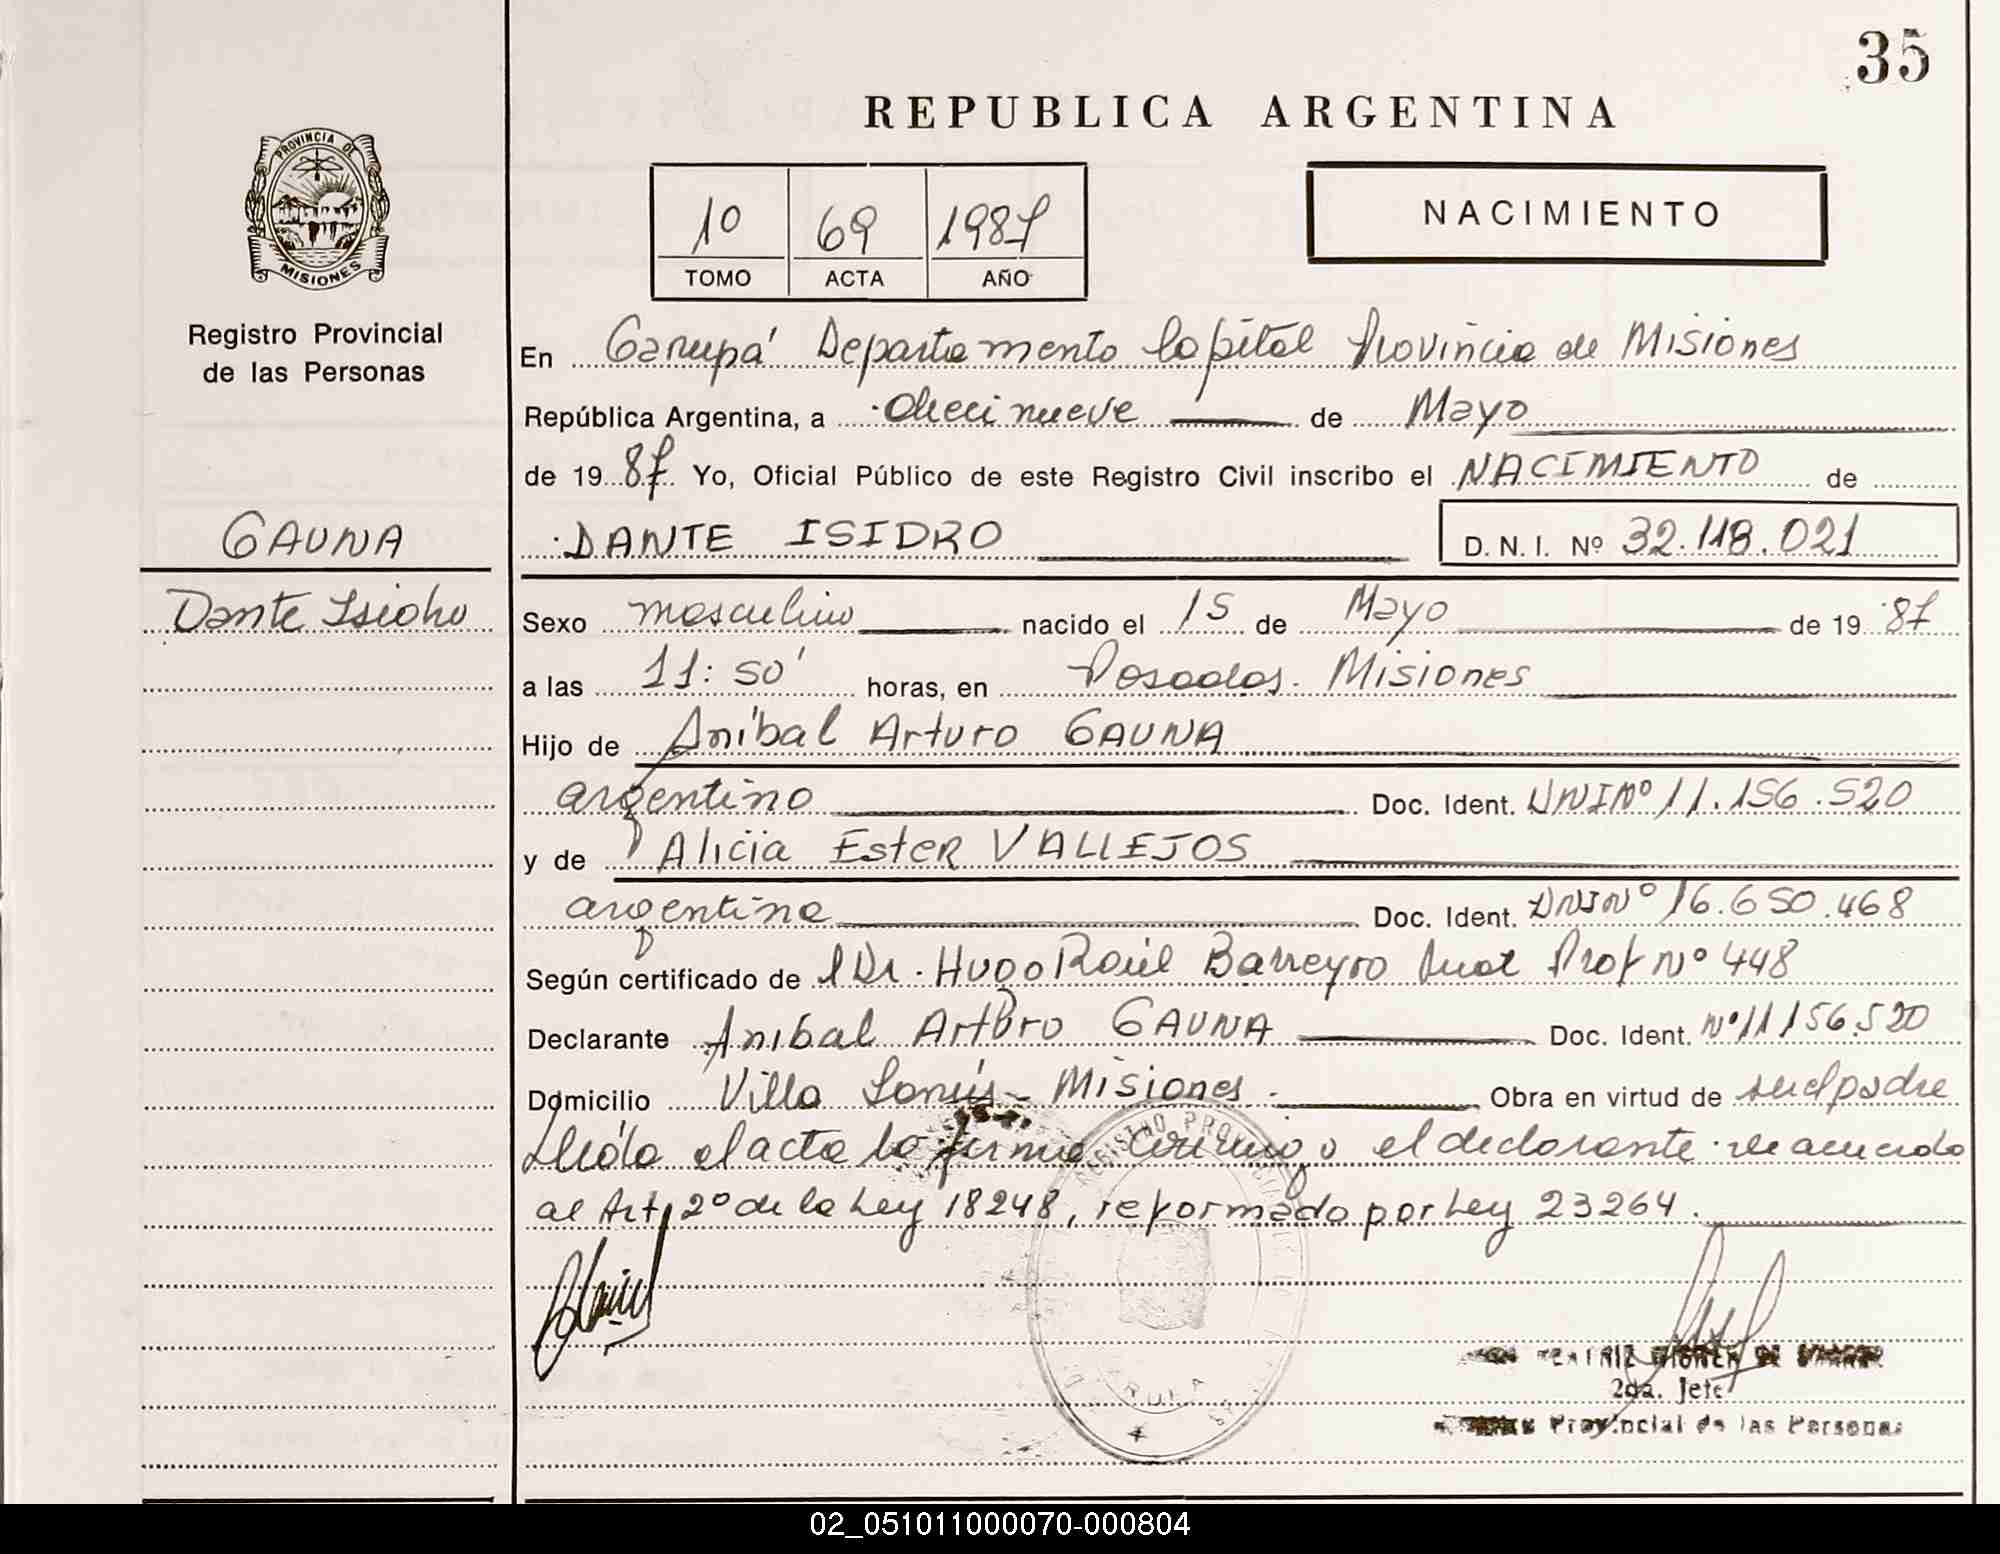 35
REPUBLICA ARGENTINA
PROVINCIA DE
MISIONES
10 69 1987
TOMO ACTA AÑO
NACIMIENTO
Registro Provincial
de las Personas
GAUNA
Dante Isidro
En Garupá Departamento Capital Provincia de Misiones
República Argentina, a diecinueve de Mayo
de 1987 Yo, Oficial Público de este Registro Civil inscribo el NACIMIENTO de
DANTE ISIDRO D. N. I. Nº 32.118.021
Sexo masculino nacido el 15 de Mayo de 1987
a las 11:50' horas, en Posadas. Misiones
Hijo de Anibal Arturo GAUNA
argentino Doc. Ident. DNI Nº 11.156.520
y de Alicia Ester VALLEJOS
argentina Doc. Ident. DNI Nº 16.650.468
Según certificado de Dr. Hugo Raúl Barreyro Prof Nº 448
Declarante Anibal Arturo GAUNA Doc. Ident. Nº 11156.520
Domicilio Villa Lanús - Misiones. Obra en virtud de ser el padre
Leída el acta la firma conmigo el declarante. de acuerdo
al Art. 2º de la Ley 18248, reformado por Ley 23264.
REGISTRO PROVINCIAL
2da. Jefe
Provincial de las Personas
02_051011000070-000804